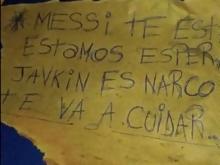 * MESSI TE EST
ESTAMOS ESPER
JAVKIN ES NARCO
TE VA A CUIDAR..